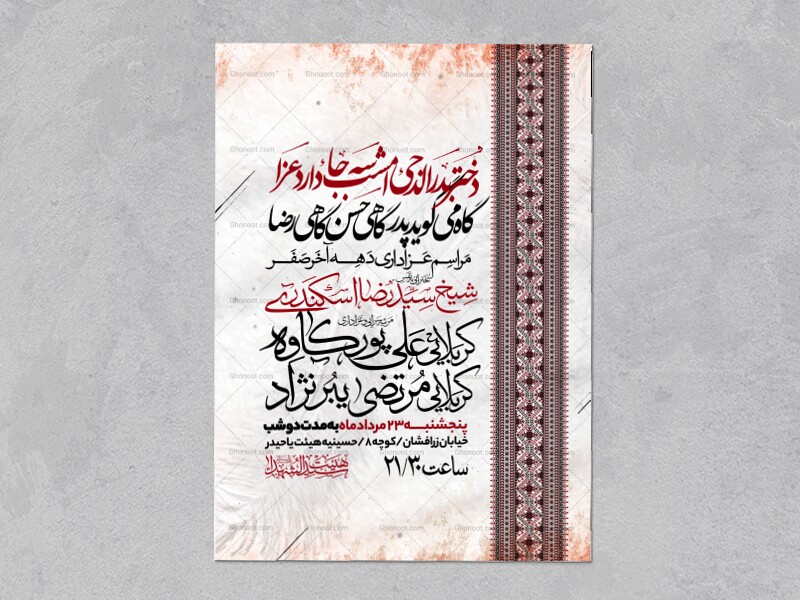 دختر بدرالدجی امشب سه جا دارد عزا
گاه می گوید پدر گاهی حسن گاهی رضا
مراسم عزاداری دهه آخر صفر
سخنرانی
شیخ سیدرضا اسکندری
مرثیه سرایی و عزاداری
کربلایی علی پورکاوه
کربلایی مرتضی ببرنژاد
پنجشنبه ۲۳ مردادماه به مدت دو شب
خیابان زرافشان / کوچه ۸ / حسینیه هیئت یاحیدر
ساعت ۲۱/۳۰
هیئت سیدالشهدا
Ghonoot.com